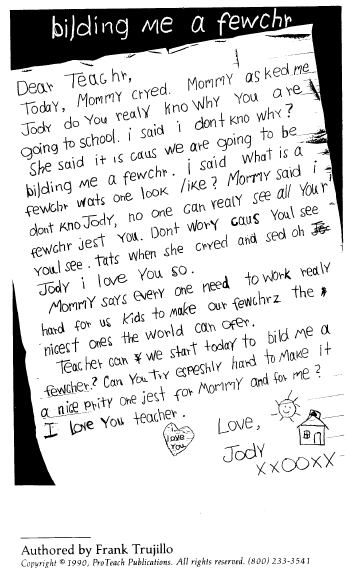 bilding me a fewchr
Dear Teachr,
Today, Mommy cryed. Mommy asked me
Jody do You realy kno Why You are
going to school. i said i dont kno why?
She said it is caus we are going to be
bilding me a fewchr. i said what is a
fewchr wats one look like? Mommy said i
dont kno Jody, no one can realy see all Your
fewchr jest You. Dont wory caus Youl see
Youl see. tats when she cryed and sed oh
Jody i love You so.
Mommy says every one need to work realy
hard for us kids to make our fewchrz the
nicest ones the world can ofer.
Teacher can we start today to bild me a
fewcher? Can You try espeshly hard to Make it
a nice prity one jest for Mommy and for me?
I love You teacher.
i love You
Love,
Jody
XXOOXX
Authored by Frank Trujillo
Copyright © 1990, ProTeach Publications. All rights reserved. (800) 233-3541